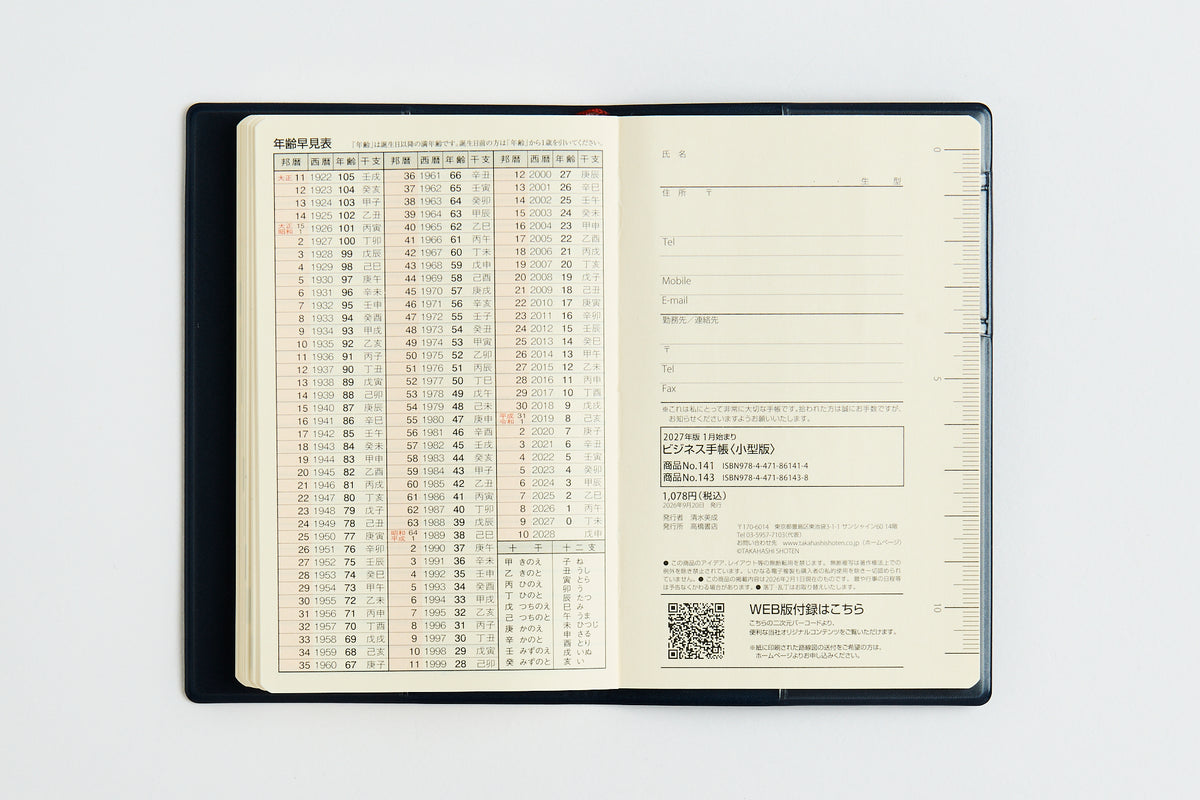 年齢早見表
「年齢」は誕生日以降の満年齢です。誕生日前の方は「年齢」から1歳を引いてください。
邦暦 西暦 年齢 干支
大正 11 1922 105 壬戌
12 1923 104 癸亥
13 1924 103 甲子
14 1925 102 乙丑
大正 15
昭和 1 1926 101 丙寅
2 1927 100 丁卯
3 1928 99 戊辰
4 1929 98 己巳
5 1930 97 庚午
6 1931 96 辛未
7 1932 95 壬申
8 1933 94 癸酉
9 1934 93 甲戌
10 1935 92 乙亥
11 1936 91 丙子
12 1937 90 丁丑
13 1938 89 戊寅
14 1939 88 己卯
15 1940 87 庚辰
16 1941 86 辛巳
17 1942 85 壬午
18 1943 84 癸未
19 1944 83 甲申
20 1945 82 乙酉
21 1946 81 丙戌
22 1947 80 丁亥
23 1948 79 戊子
24 1949 78 己丑
25 1950 77 庚寅
26 1951 76 辛卯
27 1952 75 壬辰
28 1953 74 癸巳
29 1954 73 甲午
30 1955 72 乙未
31 1956 71 丙申
32 1957 70 丁酉
33 1958 69 戊戌
34 1959 68 己亥
35 1960 67 庚子
邦暦 西暦 年齢 干支
36 1961 66 辛丑
37 1962 65 壬寅
38 1963 64 癸卯
39 1964 63 甲辰
40 1965 62 乙巳
41 1966 61 丙午
42 1967 60 丁未
43 1968 59 戊申
44 1969 58 己酉
45 1970 57 庚戌
46 1971 56 辛亥
47 1972 55 壬子
48 1973 54 癸丑
49 1974 53 甲寅
50 1975 52 乙卯
51 1976 51 丙辰
52 1977 50 丁巳
53 1978 49 戊午
54 1979 48 己未
55 1980 47 庚申
56 1981 46 辛酉
57 1982 45 壬戌
58 1983 44 癸亥
59 1984 43 甲子
60 1985 42 乙丑
61 1986 41 丙寅
62 1987 40 丁卯
63 1988 39 戊辰
昭和 64
平成 1 1989 38 己巳
2 1990 37 庚午
3 1991 36 辛未
4 1992 35 壬申
5 1993 34 癸酉
6 1994 33 甲戌
7 1995 32 乙亥
8 1996 31 丙子
9 1997 30 丁丑
10 1998 29 戊寅
11 1999 28 己卯
邦暦 西暦 年齢 干支
12 2000 27 庚辰
13 2001 26 辛巳
14 2002 25 壬午
15 2003 24 癸未
16 2004 23 甲申
17 2005 22 乙酉
18 2006 21 丙戌
19 2007 20 丁亥
20 2008 19 戊子
21 2009 18 己丑
22 2010 17 庚寅
23 2011 16 辛卯
24 2012 15 壬辰
25 2013 14 癸巳
26 2014 13 甲午
27 2015 12 乙未
28 2016 11 丙申
29 2017 10 丁酉
30 2018 9 戊戌
平成 31
令和 1 2019 8 己亥
2 2020 7 庚子
3 2021 6 辛丑
4 2022 5 壬寅
5 2023 4 癸卯
6 2024 3 甲辰
7 2025 2 乙巳
8 2026 1 丙午
9 2027 0 丁未
10 2028 戊申
十干
甲 きのえ
乙 きのと
丙 ひのえ
丁 ひのと
戊 つちのえ
己 つちのと
庚 かのえ
辛 かのと
壬 みずのえ
癸 みずのと
十二支
子 ね
丑 うし
寅 とら
卯 う
辰 たつ
巳 み
午 うま
未 ひつじ
申 さる
酉 とり
戌 いぬ
亥 い
氏 名
・ ・ 生 型
住 所 〒
Tel
Mobile
E-mail
勤務先／連絡先
〒
Tel
Fax
※これは私にとって非常に大切な手帳です。拾われた方は誠にお手数ですが、
お知らせくださいますようお願いいたします。
2027年版 1月始まり
ビジネス手帳〈小型版〉
商品No.141 ISBN978-4-471-86141-4
商品No.143 ISBN978-4-471-86143-8
1,078円(税込)
2026年9月20日 発行
発行者 清水美成
発行所 高橋書店
〒170-6014 東京都豊島区東池袋3-1-1 サンシャイン60 14階
Tel 03-5957-7103(代表)
お問い合わせ先 www.takahashishoten.co.jp（ホームページ）
©TAKAHASHI SHOTEN
● この商品のアイデア、レイアウト等の無断転用を禁じます。無断複写は著作権法上での
例外を除き禁止されています。いかなる電子複製も購入者の私的使用を除き一切認められ
ていません。● この商品の掲載内容は2026年2月1日現在のものです。暦や行事の日程等
は予告なくかわる場合があります。● 落丁・乱丁はお取り替えいたします。
WEB版付録はこちら
こちらの二次元バーコードより、
便利な当社オリジナルコンテンツをご覧いただけます。
※紙に印刷された路線図の送付をご希望の方は、
ホームページよりお申し込みください。
0
5
10